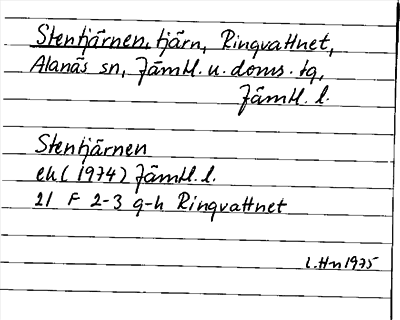 Stentjärnen, tjärn, Ringvattnet,
Alanäs sn, Jämtl. u. doms. tg,
Jämtl. l.
Stentjärnen
ek (1974) Jämtl. l.
21 F 2-3 g-h Ringvattnet
L.Hn 1975